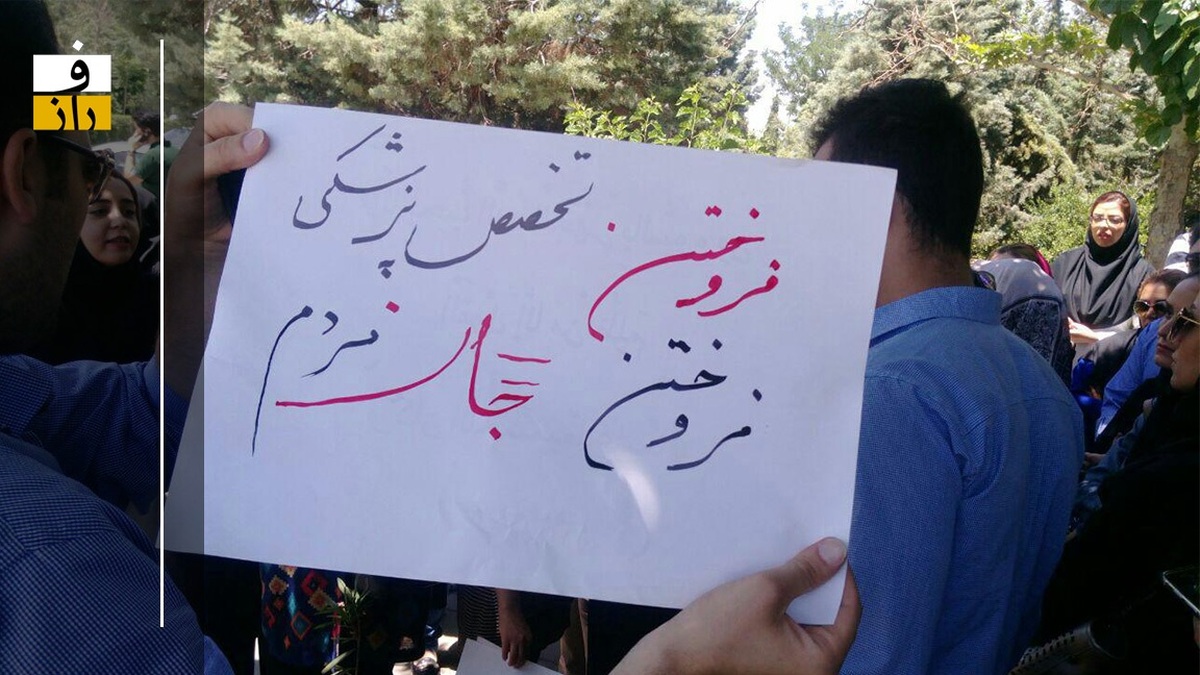 فراز
فروختن تخصص پزشکی
فروختن = جان مردم